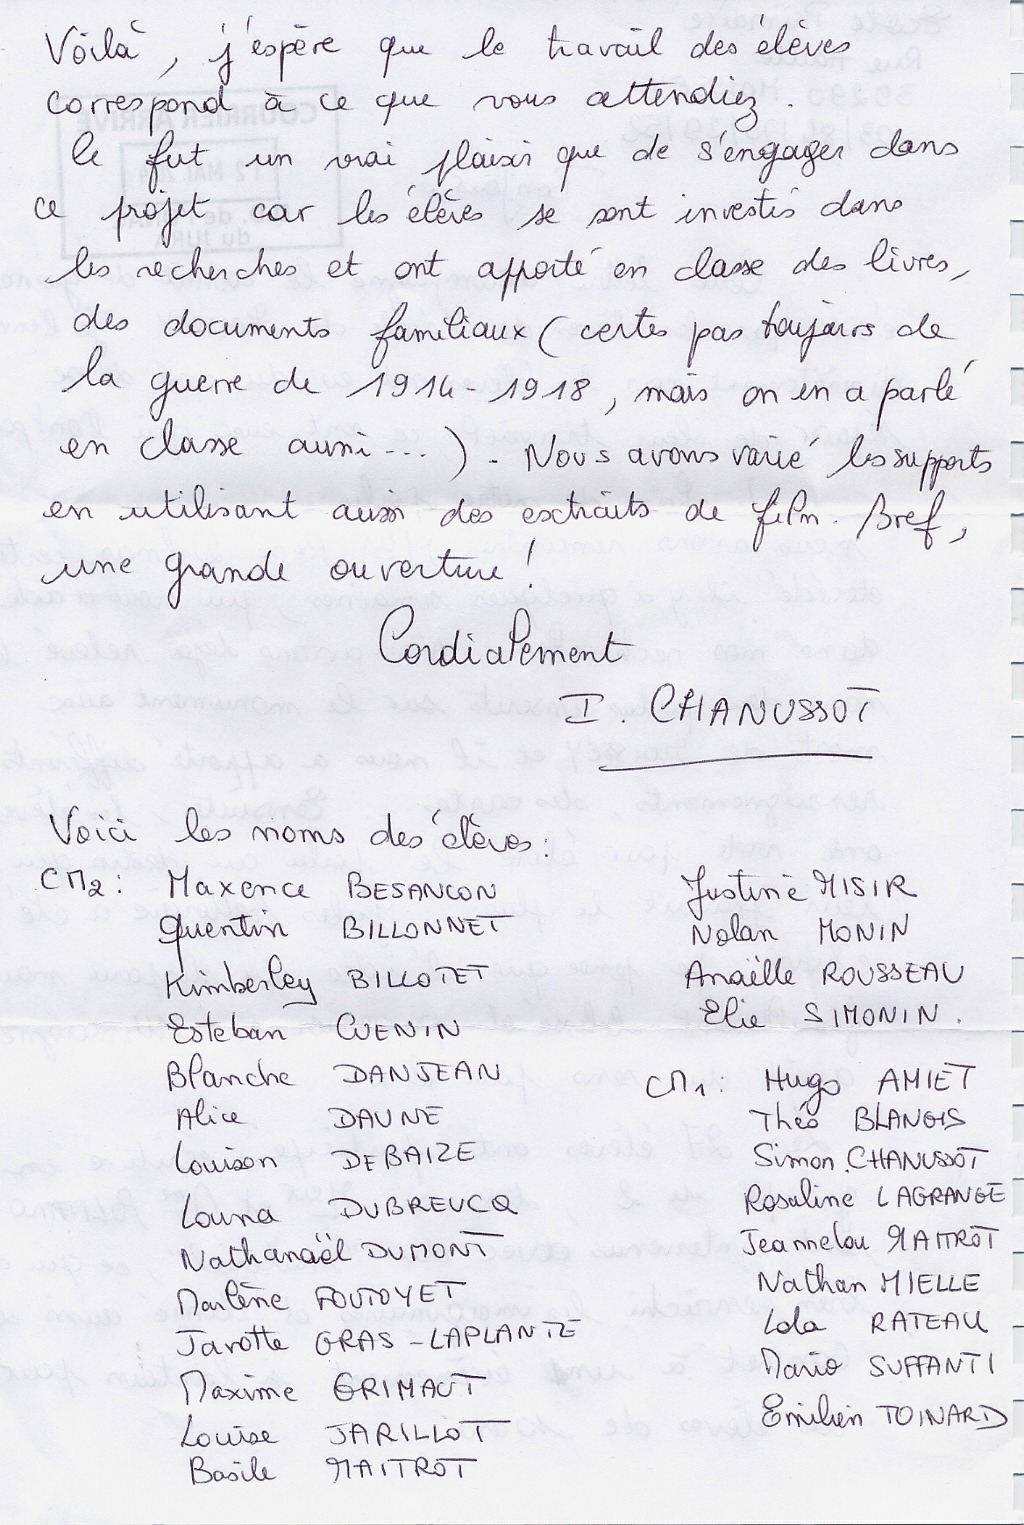 Voilà, j'espère que le travail des élèves
correspond à ce que vous attendiez.
Ce fut un vrai plaisir que de s'engager dans
ce projet car les élèves se sont investis dans
les recherches et ont apporté en classe des livres,
des documents familiaux (certes pas toujours de
la guerre de 1914-1918, mais on en a parlé
en classe aussi...). Nous avons varié les supports
en utilisant aussi des extraits de film. Bref,
une grande ouverture !
Cordialement
I. CHANUSSOT
Voici les noms des élèves :
CM2 : Maxence BESANCON
Quentin BILLONNET
Kimberley BILLOTET
Esteban CUENIN
Blanche DANJEAN
Alice DAUNE
Louison DEBAIZE
Louna DUBREUCQ
Nathanaël DUMONT
Marlène FOUTOYET
Javotte GRAS-LAPLANTE
Maxime GRIMAUT
Louise JARILLOT
Basile MAITROT
Justine MISIR
Nolan MONIN
Anaëlle ROUSSEAU
Elie SIMONIN.
CM1 : Hugo AMIET
Théo BLANOIS
Simon CHANUSSOT
Rosaline LAGRANGE
Jeannelou MAITROT
Nathan MIELLE
Lola RATEAU
Mario SUFFANTI
Emilien TOINARD